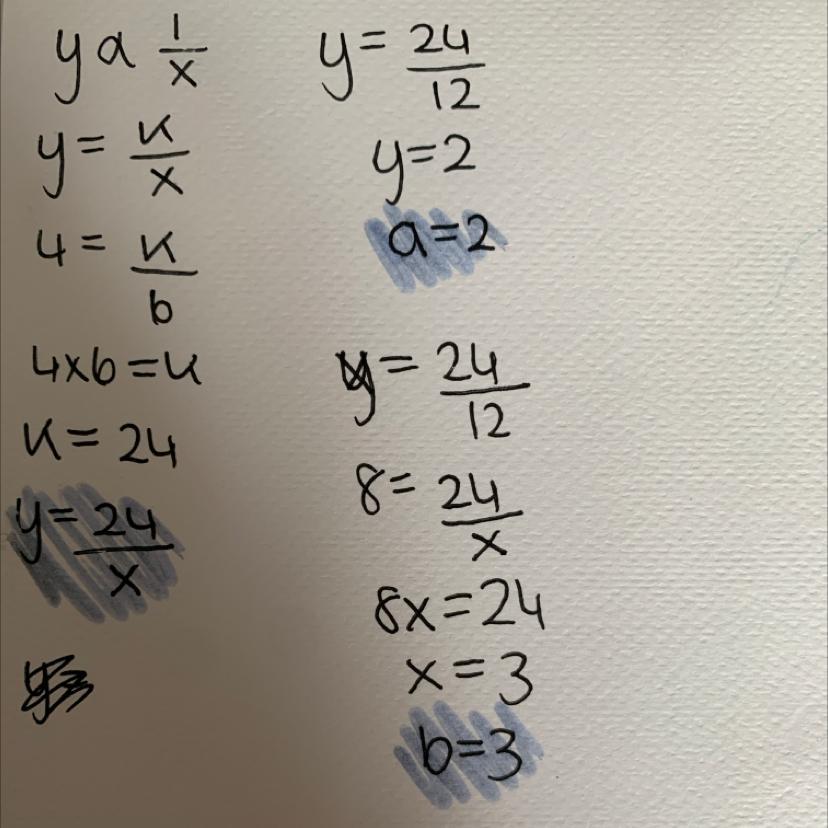 y α 1/x
y = k/x
4 = k/6
4×6 = k
k = 24
y = 24/x
y = 24/12
y = 2
a = 2
y = 24/12
8 = 24/x
8x = 24
x = 3
b = 3